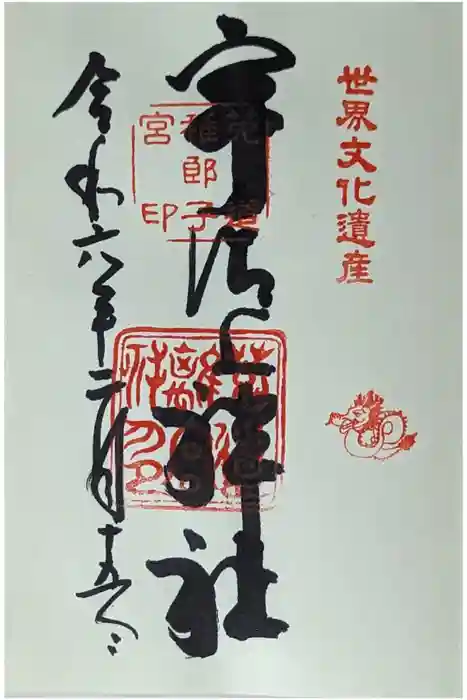 世界文化遺産
宇治上神社
兎道
稚郎子
宮印
令和六年二月十五日